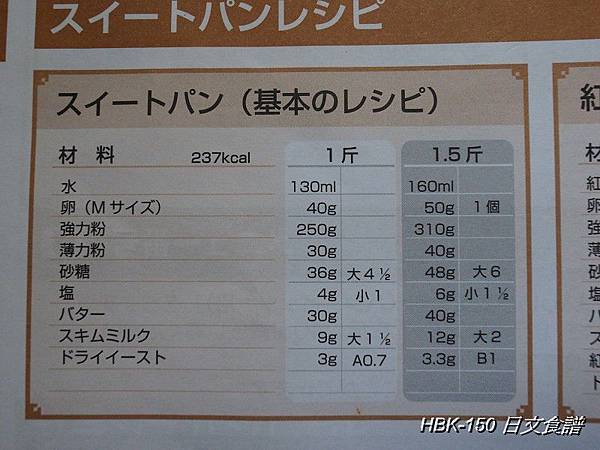 スイートパンレシピ
スイートパン（基本のレシピ）
材 料 237kcal 1斤 1.5斤
水 130ml 160ml
卵（Mサイズ） 40g 50g 1個
強力粉 250g 310g
薄力粉 30g 40g
砂糖 36g 大4½ 48g 大6
塩 4g 小1 6g 小1½
バター 30g 40g
スキムミルク 9g 大1½ 12g 大2
ドライイースト 3g A0.7 3.3g B1
紅
材
紅
卵
強
薄
砂
塩
バ
ス
紅
ド
HBK-150 日文食譜